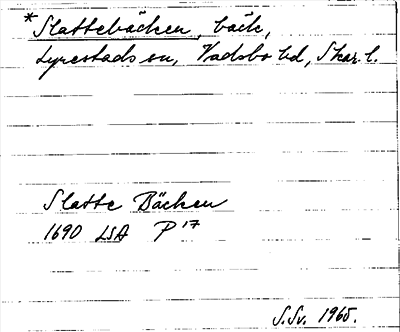 *Slattebäcken, bäck,
Lyrestads sn, Vadsbo hd, Skar. l.
Slatte Bäcken
1690 LSA P 17
S.Sv. 1965.